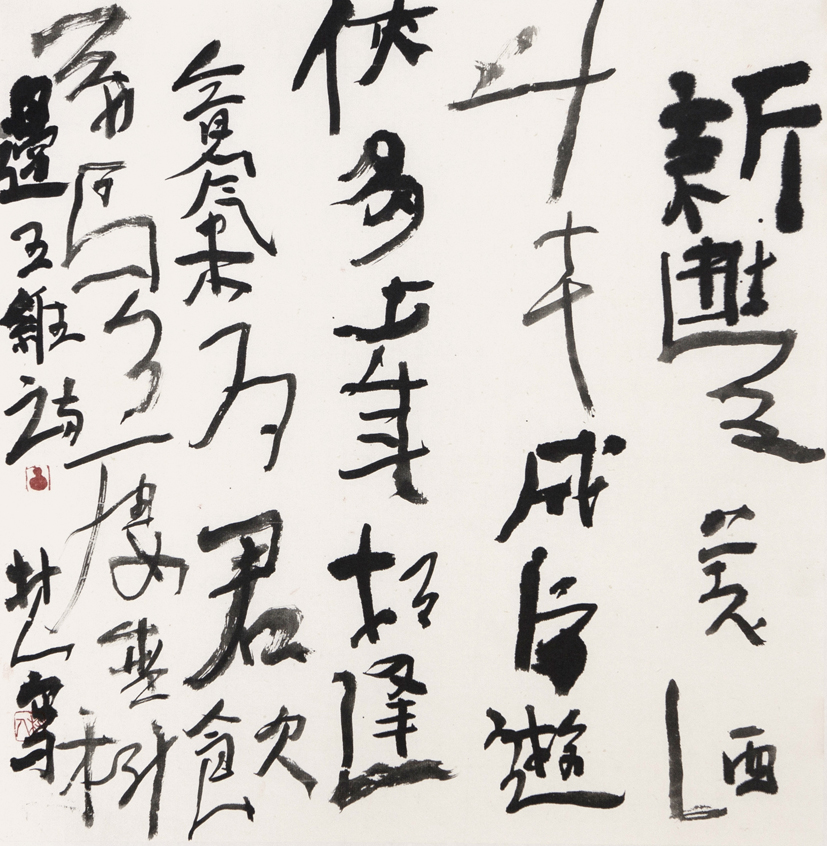 新豐美酒
斗十千咸陽遊
俠多少年相逢
意氣為君飲
繫馬高樓垂柳
邊王維詩 寫